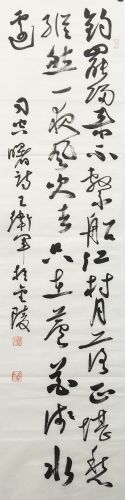 釣罷歸來不繫船江村月落正堪
縱然一夜風吹去只在蘆花淺水
邊
司空曙詩 衛軍於金陵